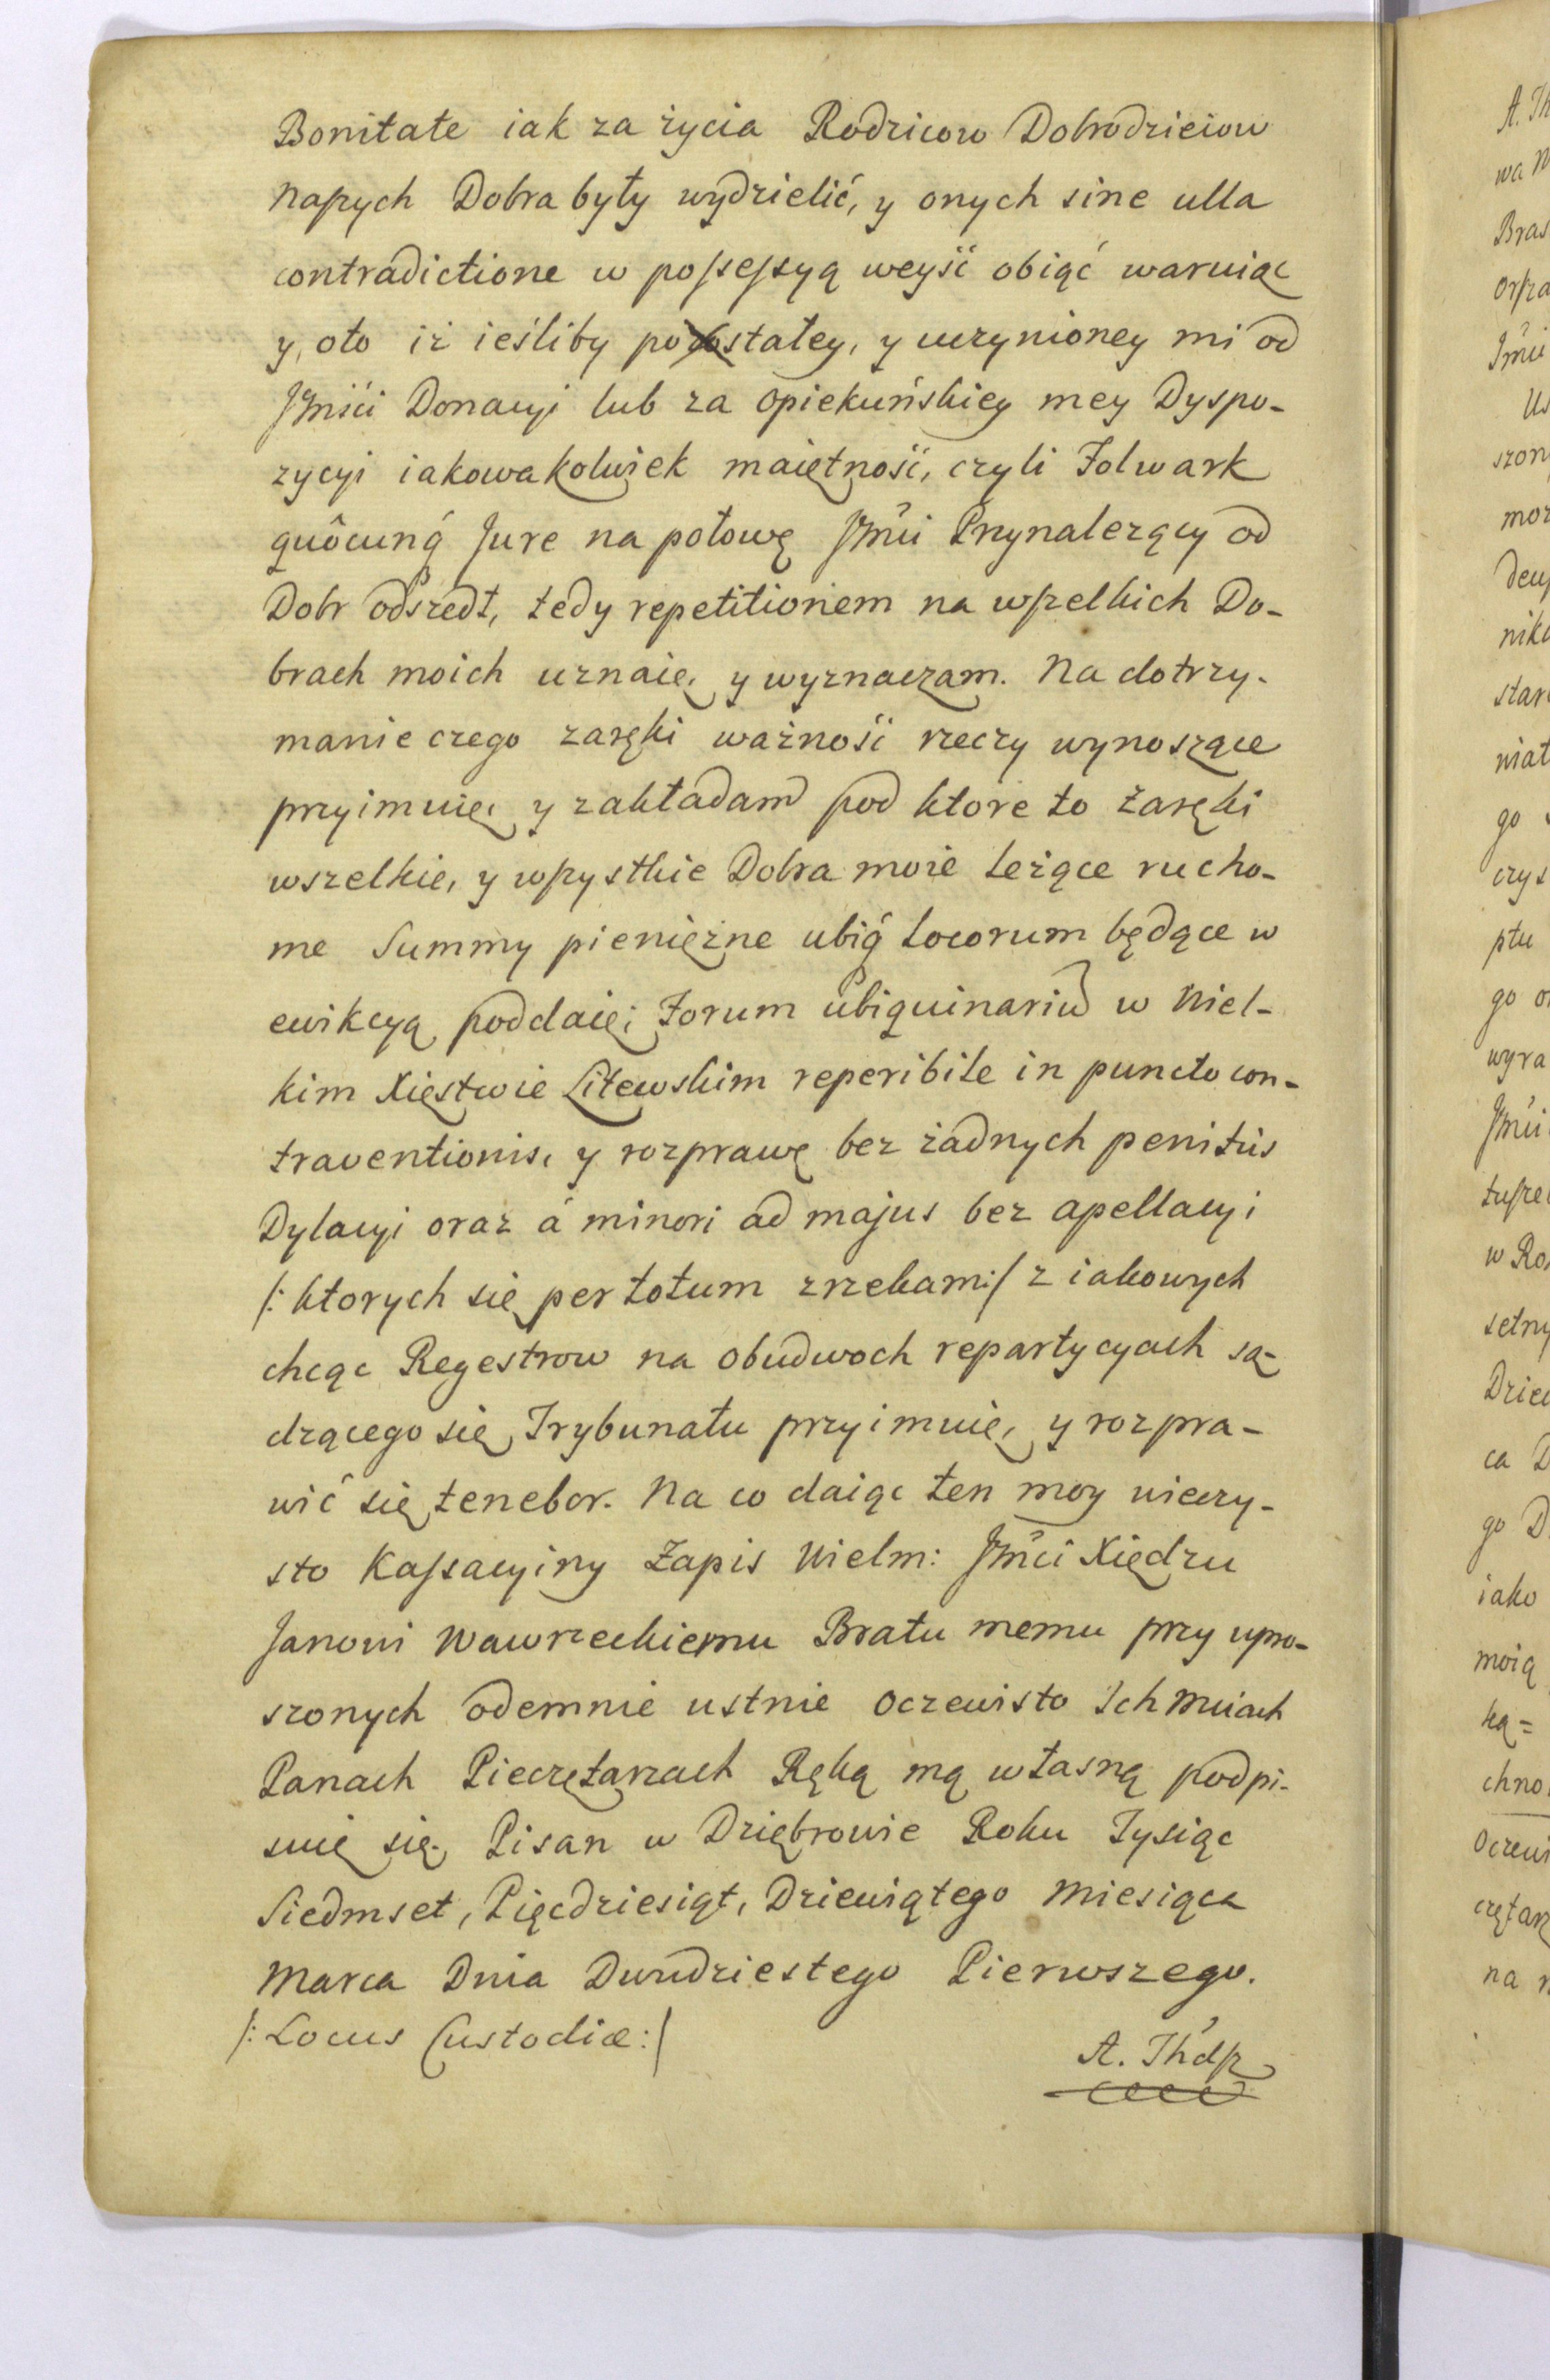 Bonitate iak za życia Rodzicow Dobrodzieiow
Naszych Dobra były wydzielić, y onych sine ulla
contradictione w possessyą weyść obiąć waruiąc
y, oto iż ieśliby postałey, y uczynioney mi od
Jmści Donacyi lub za opiekuńskiey mey Dyspo-
zycyi iakowakolwiek maiętność, czyli Folwark
quôcunq́ Jure na połowę Jmći Przynależący od
Dobr odszedł, tedy repetitionem na wszelkich Do-
brach moich uznaię, y wyznaczam. Na dotrzy-
manie czego zaręki ważność rzeczy wynoszące
przyimuię, y zakładam pod ktore to zaręki
wszelkie, y wszystkie Dobra moie leżące rucho-
me Summy pieniężne ubiq́ Locorum będące w
ewikcyą poddaię; Forum ubiquinariũ w Wiel-
kim Xięstwie Litewskim reperibile in puncto con-
traventionis, y rozprawę bez żadnych penitùs
Dylacyi oraz á minori ad majus bez apellacyi
/: ktorych się per totum zrzekam :/ z iakowych
chcąc Regestrow na obudwoch repartycyach są-
dzącego się Trybunału przyimuię, y rozpra-
wić się tenebor. Na co daiąc ten moy wieczy-
sto Kassacyiny Zapis Wielm: Jmći Xiędzu
Janowi Wawrzeckiemu Bratu memu przy upro-
szonych odemnie ustnie oczewisto Ichmciach
Panach Pieczętarzach Ręką mą własną podpi-
suię się. Pisan w Dziębrowie Roku Tysiąc
Siedmset, Pięcdziesiąt, Dziewiątego Miesiąca
Marca Dnia Dwudziestego Pierwszego.
/: Locus Custodiæ :/